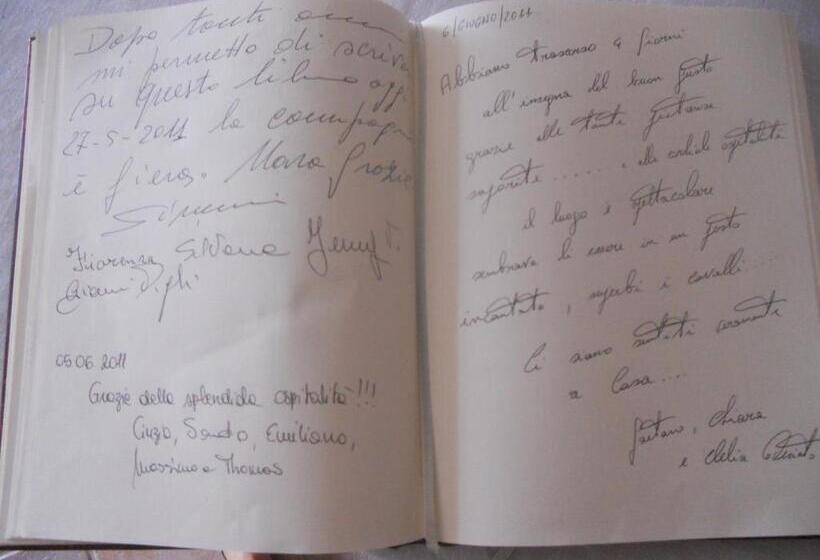 Dopo tanti anni
mi permetto di scrive
su questo libro oggi
27-5-2011 la compagn
è fiera. Mara Grazie
Fiorenza Silvana Jenny T.
Gianni
05.06.2011
Grazie della splendida ospitalità!!!
Cinzia, Sandro, Emiliano,
Massimo e Thomas
6/GIUGNO/2011
Abbiamo trascorso 4 giorni
all'insegna del buon gusto
grazie alle tante pietanze
saporite...... e alla cordiale ospitalità
il luogo è spettacolare
sembrava di essere in un posto
incantato, superbi i cavalli...
Ci siamo sentiti veramente
a Casa...
Gaetano, Chiara
e Clelia